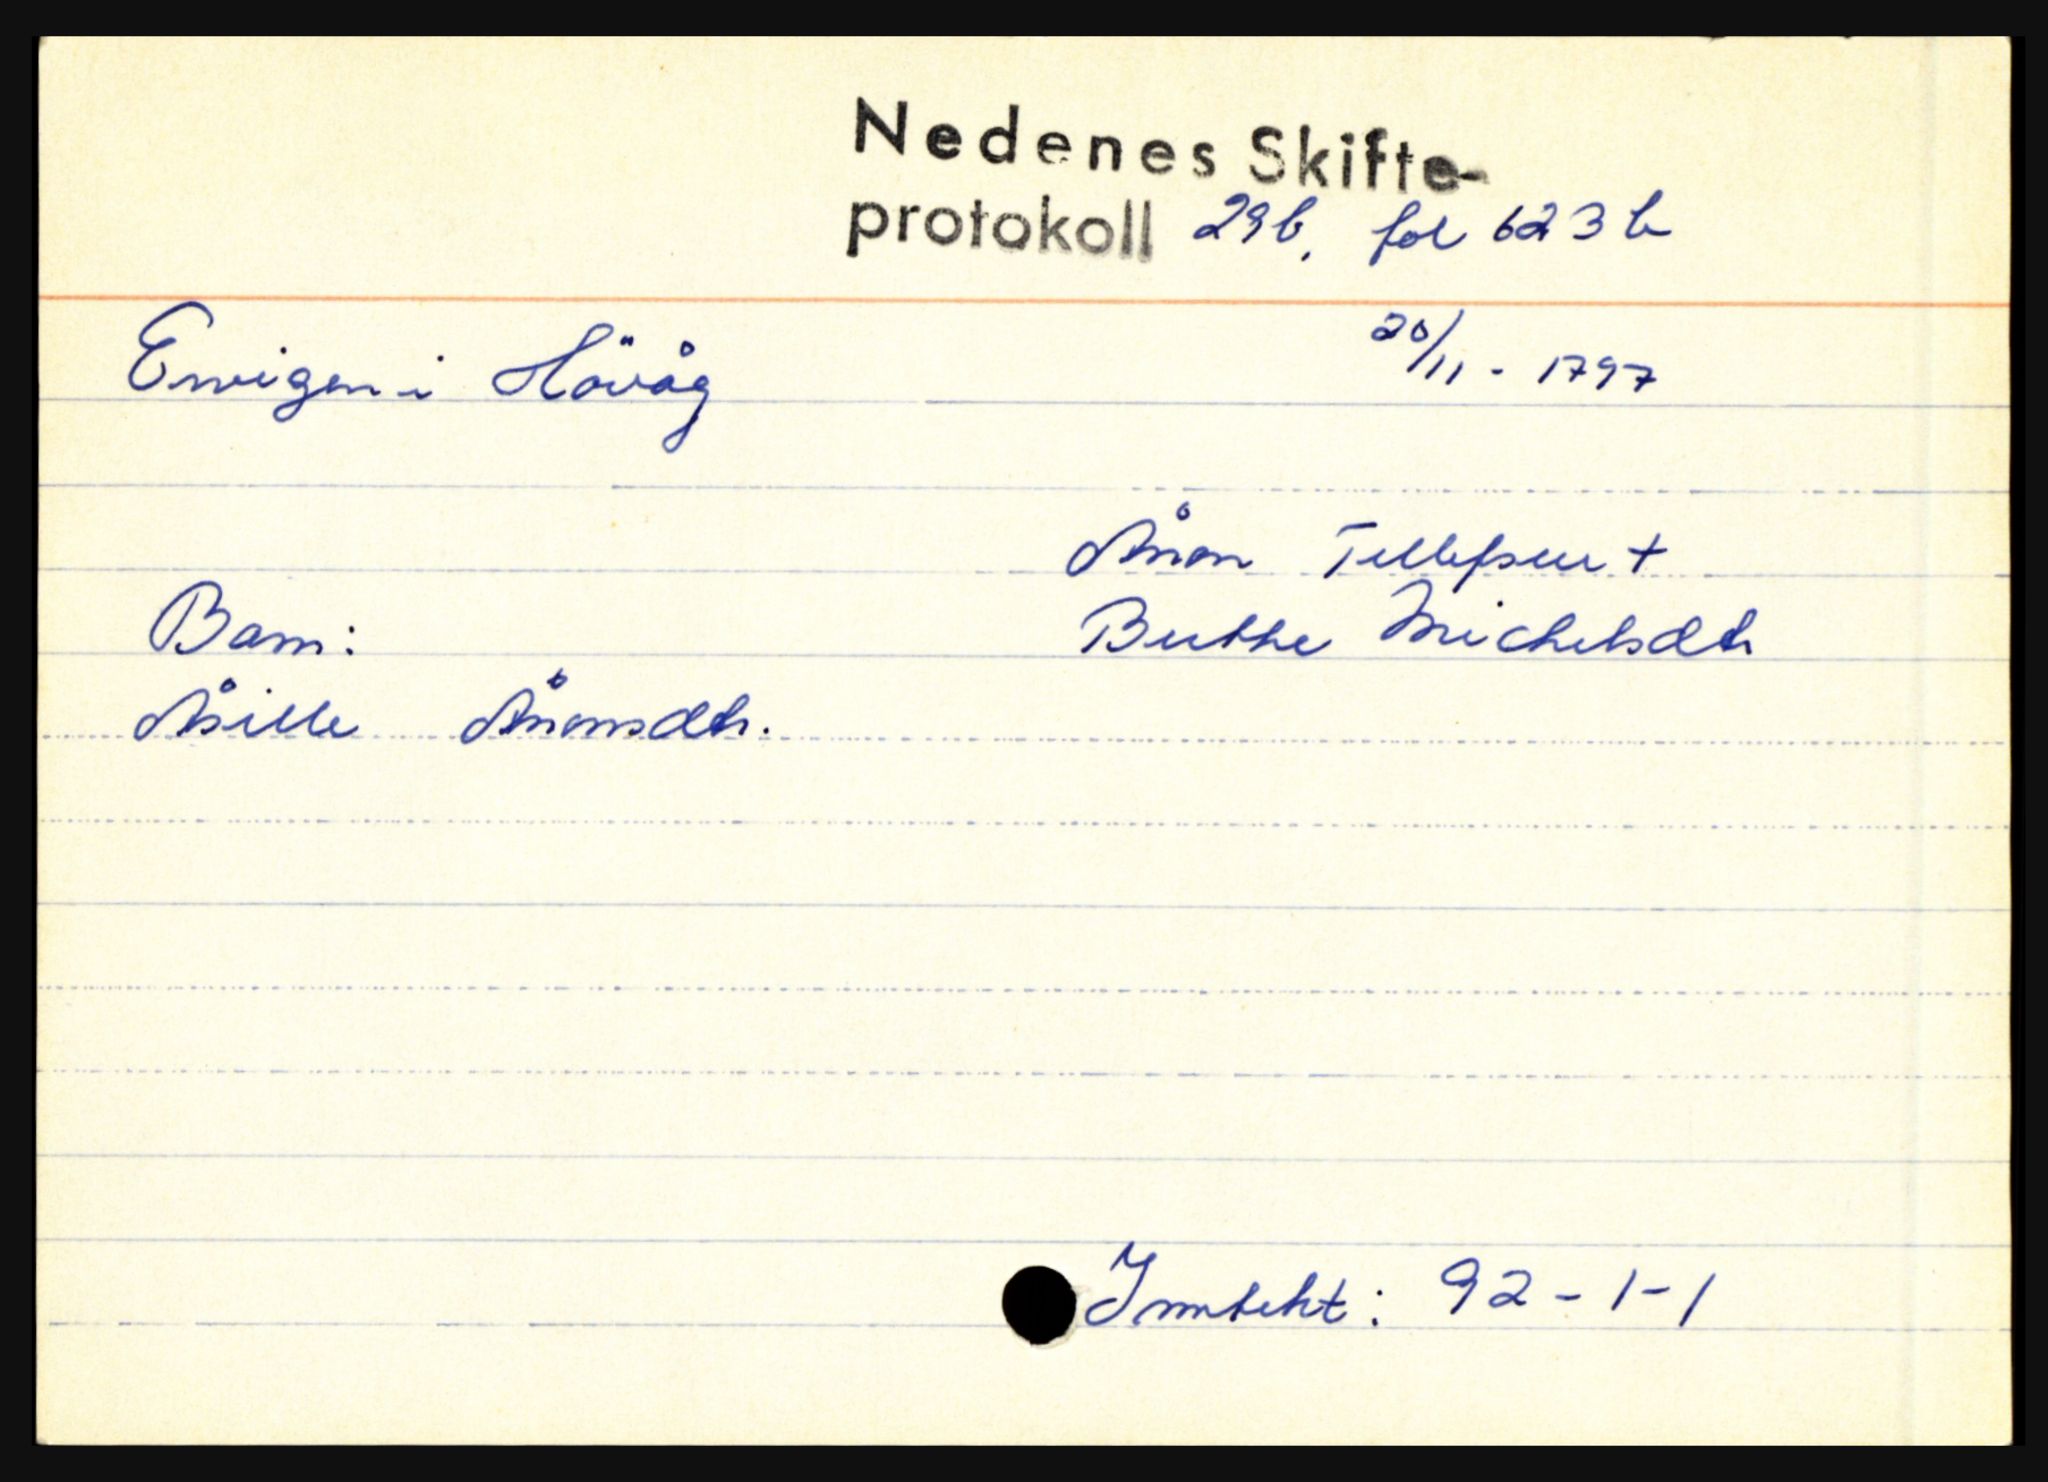 Nedenes Skifte-
protokoll 29b, fol 623b
Envigen i Hövåg 20/11 - 1797
Ånon Tellefsen +
Barn: Berthe Michelsdtr
Åsille Ånonsdtr.
Inntekt: 92-1-1